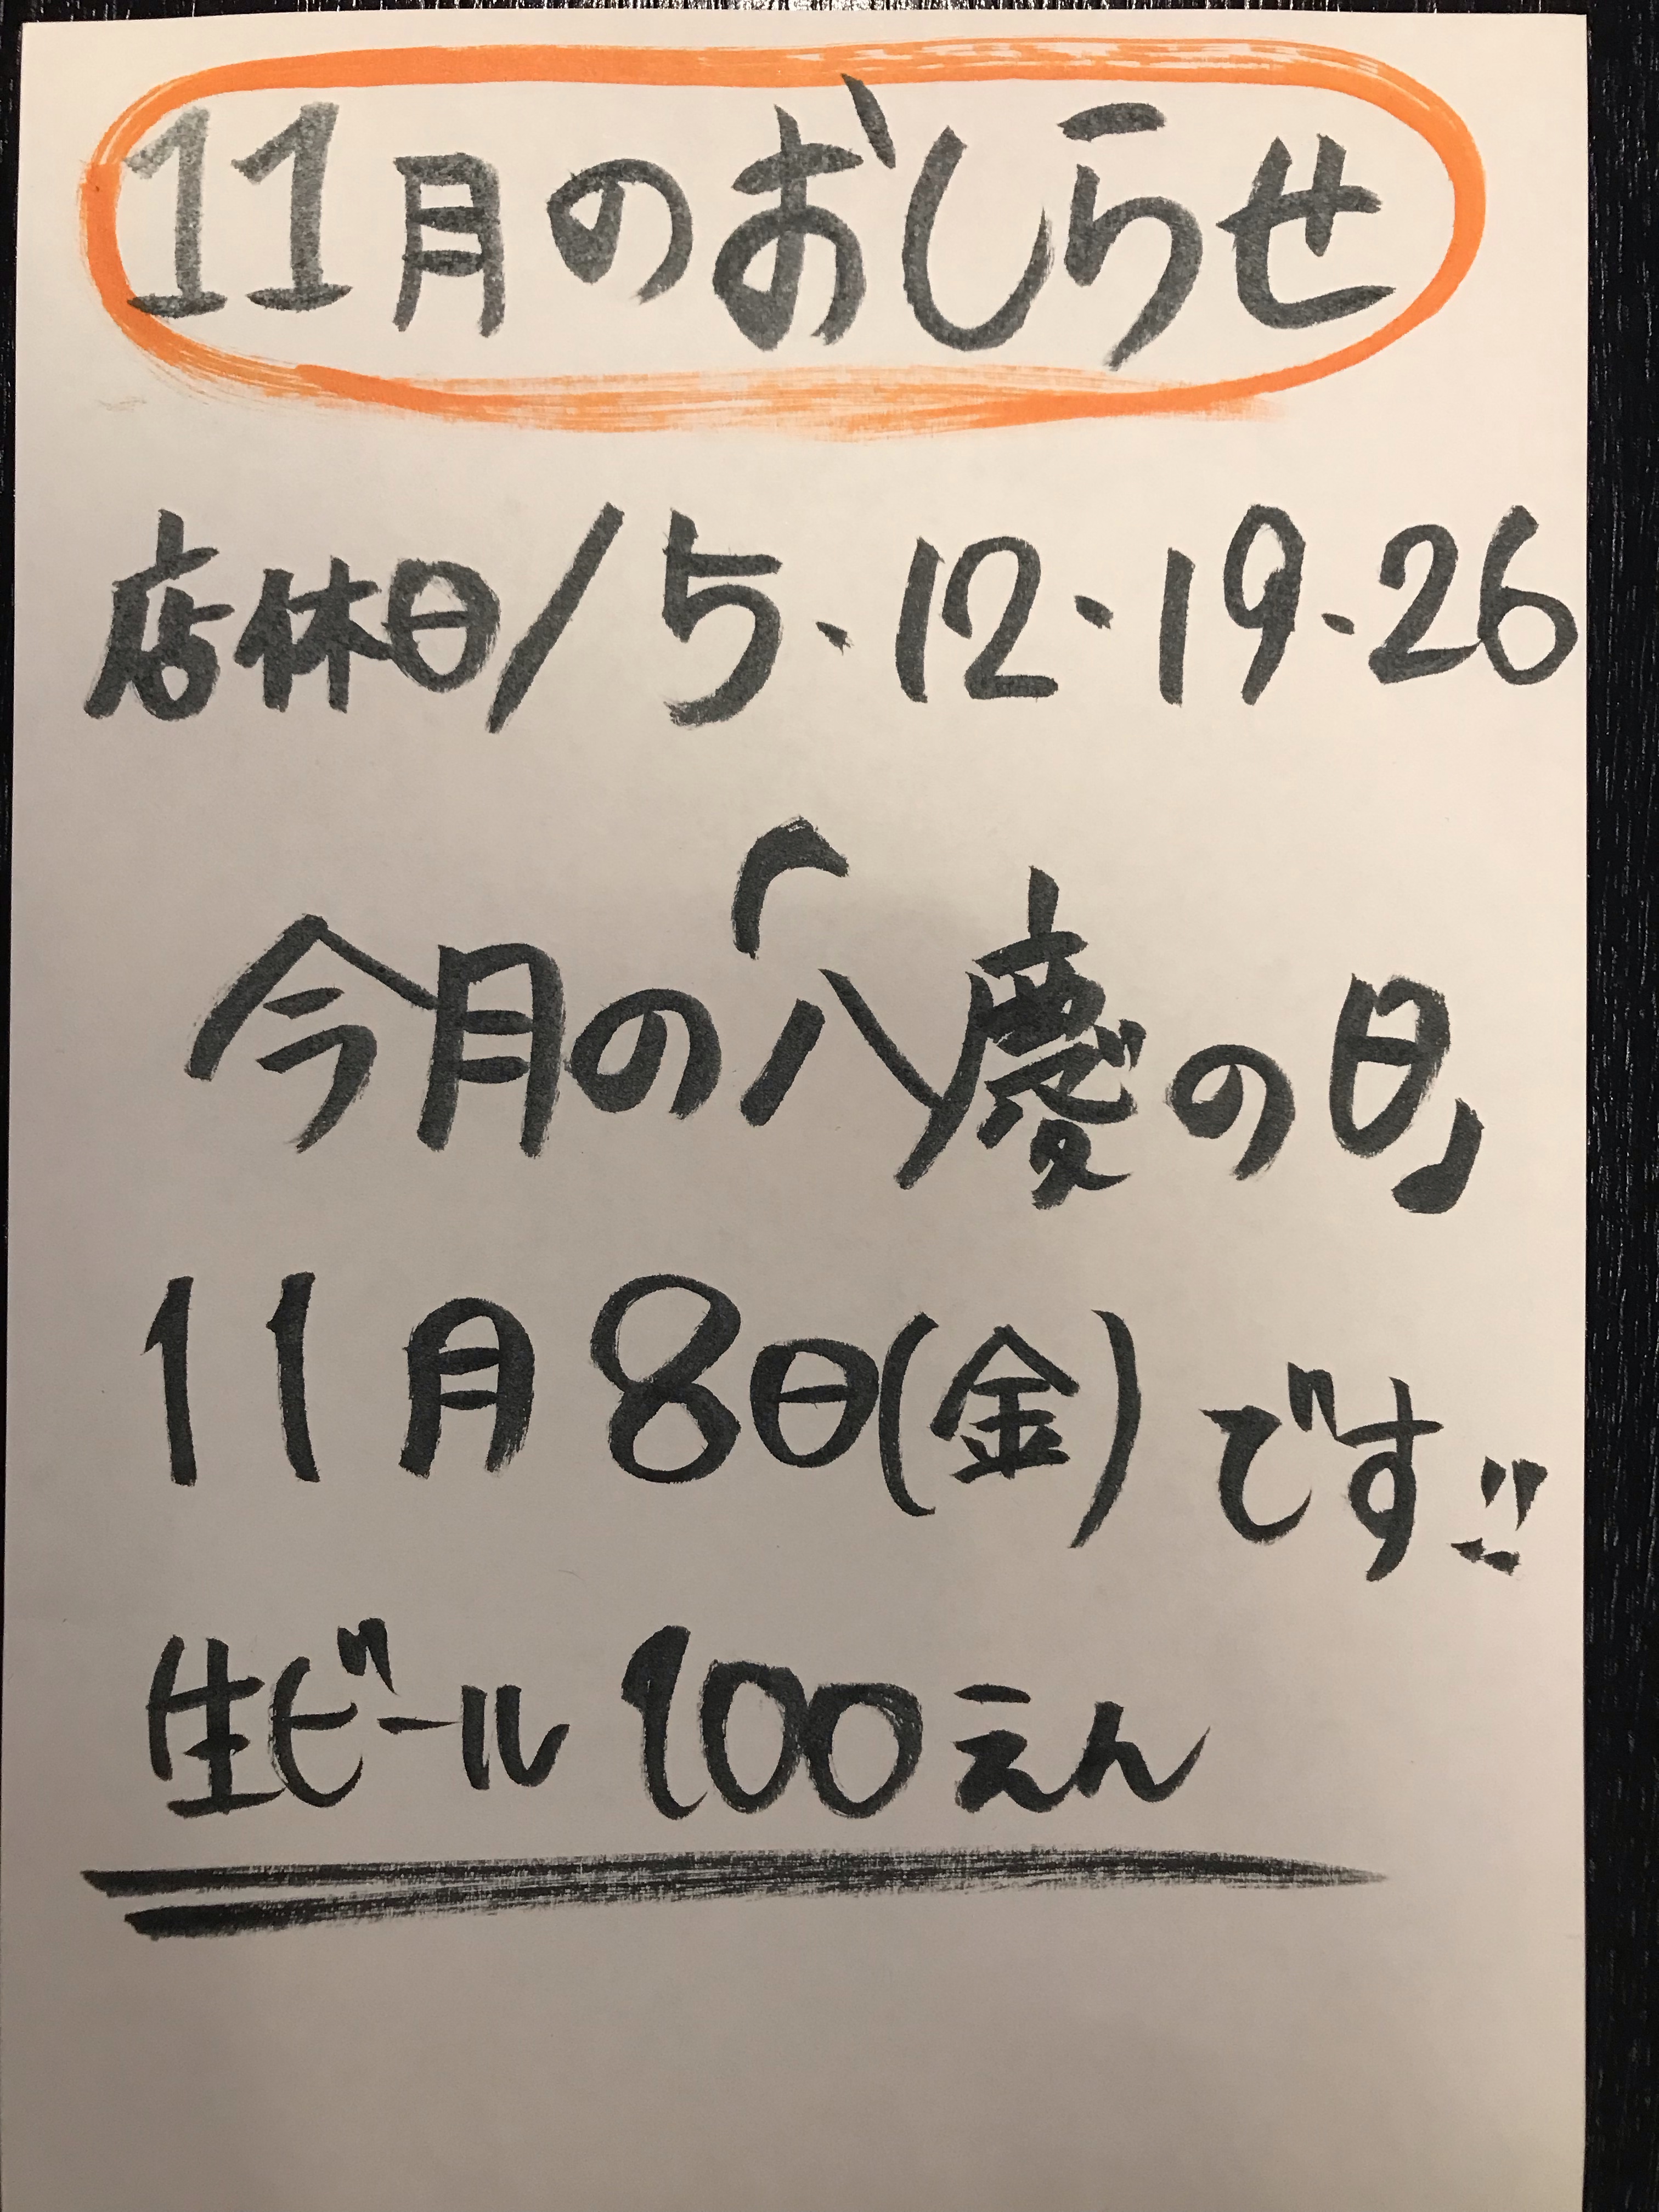 11月のおしらせ
店休日/5・12・19・26
今月の「八慶の日」
11月8日(金)です!!
生ビール100えん